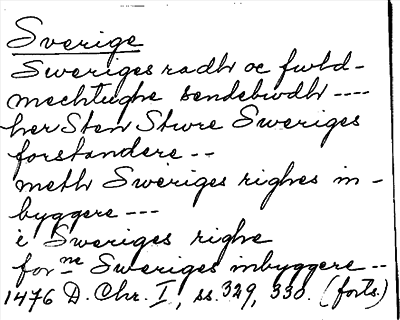 Sverige
Sweriges radh oc fwld-
mechtughe sendebwdh ----
her Sten Stwre Sweriges
forstandere --
meth Sweriges righes in-
byggere ---
i Sweriges righe
for ne Sweriges inbyggere --
1476 D. Chr. I, ss. 329, 330. (forts.)